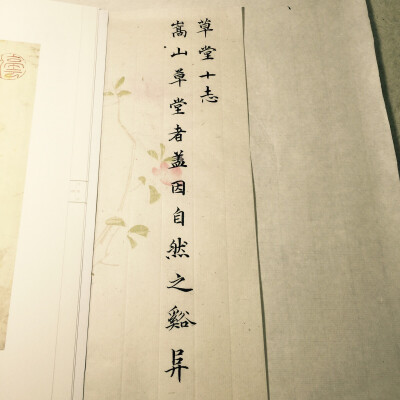 草堂十志
嵩山草堂者盖因自然之谿阜